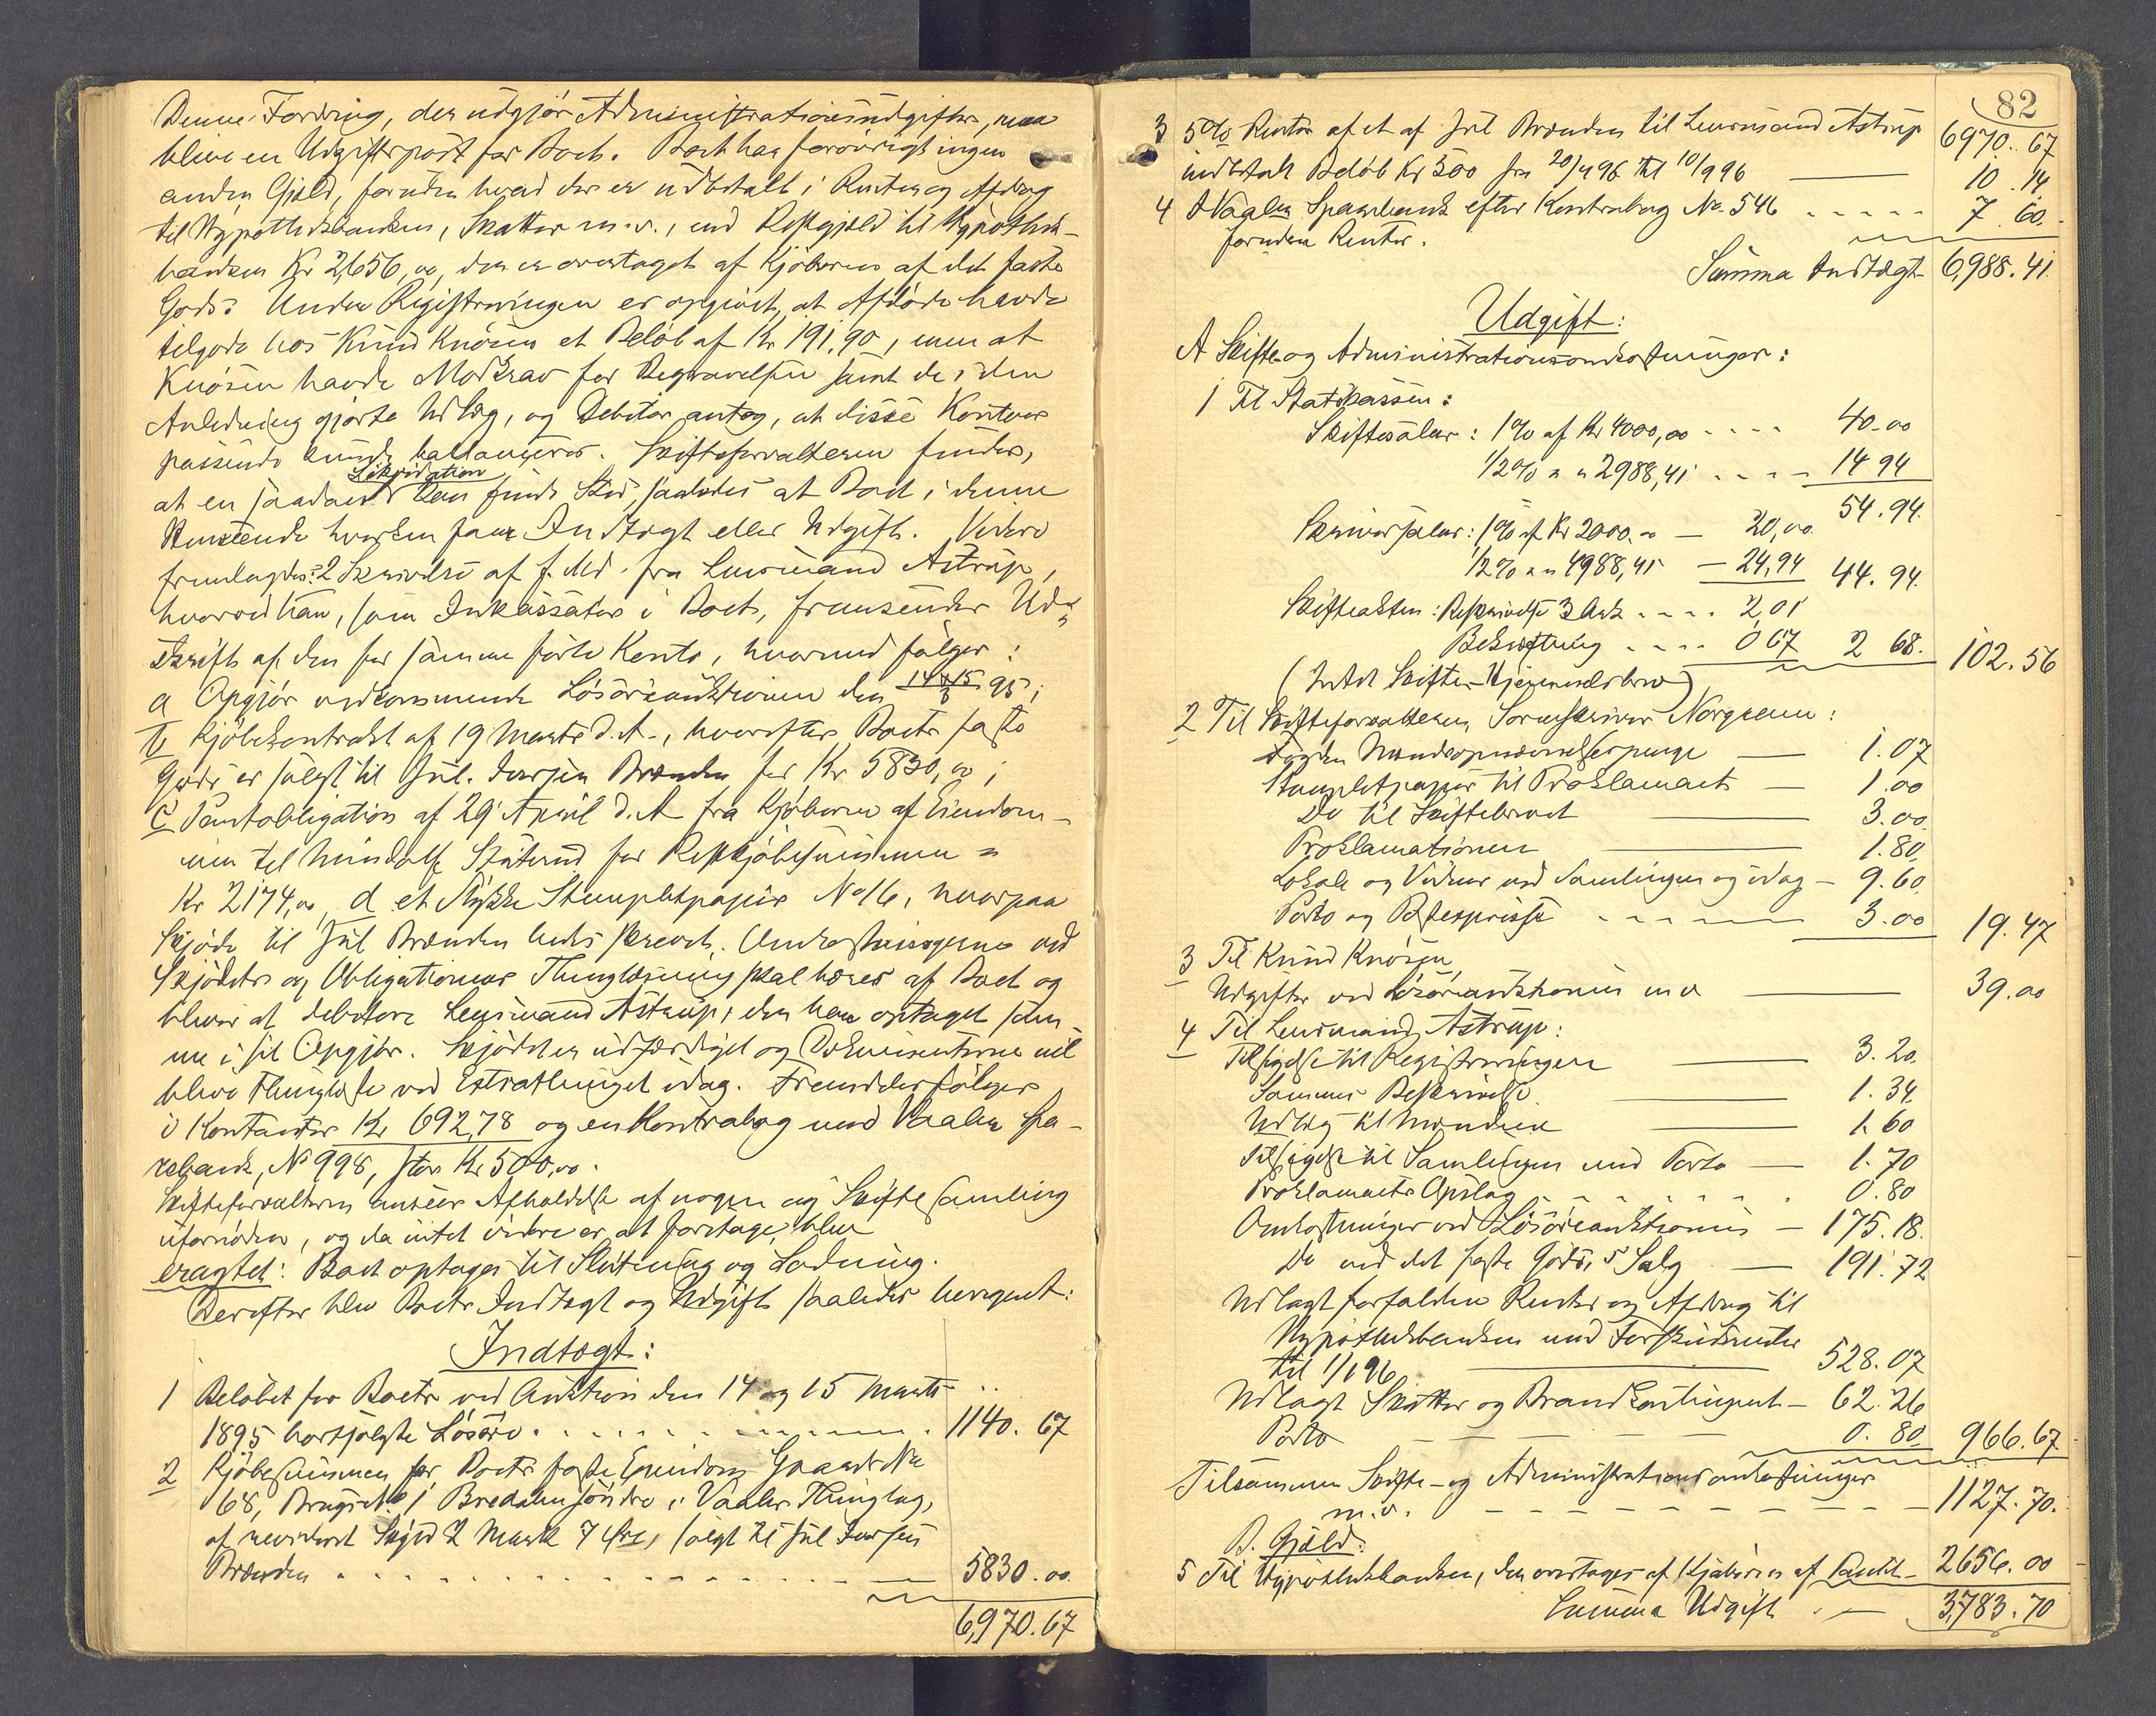 Denne Fordring, der udgjør Administrationsudgifter, maa
blive en Udgiftspost for Boet. Boet har forøvrigt ingen
anden Gjæld, foruden hvad der er udbetalt i Renter og Afdrag
til Hypothekbanken, Skatter m.v., end Restgjæld til Hypothek-
banken Kr 2,656,00, der er overtaget af Kjøberen af det faste
Gods. Under Registreringen er opgivet, at Afdøde havde
tilgode hos Knud Knøsen et Beløb af Kr 191,90, men at
Knøsen havde Modkrav for Begravelsen samt de i den
Anledning gjorte Udlæg, og Debitor antog, at disse Kontoer
passende kunde ballanceres. Skifteforvalteren finder,
at en saadan Likvidation kan finde Sted, saaledes at Boet i denne
Henseende hverken faar Indtægt eller Udgift. Videre
fremlagdes: 2 Skrivelse af f. Md. fra Lensmand Astrup,
hvorved han, som Inkassator i Boet, fremsender Ud-
skrift af den for samme førte Konto, hvormed følger:
a Opgjør vedkommende Løsøreauktionen den 14 & 15/3 95;
b Kjøbekontrakt af 19 Marts d. A., hvorefter Boets faste
Gods er solgt til Jul. Iversen Brænden for Kr 5830,00;
c Pantobligation af 29 April d. A fra Kjøberen af Eiendom-
men til Restkjøbesummen =
Kr 2174,00, d et Stykke Stempletpapir No 16, hvorpaa
Skjøde til Jul Brænden bedes skrevet. Omkostningerne ved
Skjødets og Obligationens Thinglæsning skal bæres af Boet og
bliver at debitere Lensmand Astrup, der har optaget sam-
me i sit Opgjør. Skjødet er udfærdiget og Dokumenterne vil
blive thinglæste ved Extrathinget idag. Fremdeles følger
i Kontanter Kr 692,78 og en Kontrabog med Vaaler Spa-
rebank, No 998, stor Kr 500,00.
Skifteforvalteren anseer Afholdelse af nogen ny Skiftesamling
ufornøden, og da intet videre er at foretage, blev
eragtet: Boet optages til Slutning og Lodning.
Derefter blev Boets Indtægt og Udgift saaledes beregnet:
Indtægt:
1 Beløbet for Boets ved Auktion den 14 og 15 Marts
1895 bortsolgte Løsøre . . . . . . . . 1140. 67
2 Kjøbesummen for Boets faste Eiendom Gaards No
68, Brugs No 1 Bredalen søndre i Vaaler Thinglag,
af revideret Skyld 2 Mark 7 Øre, solgt til Jul Iversen
Brænden . . . . . . . . 5830.00
6,970.67
82
6970.67
3 5% Renter af et af Jul Brænden til Lensmand Astrup
indbetalt Beløb Kr 500 fra 20/4 96 til 10/9 96 — 10.14
4 I Vaaler Sparebank efter Kontrabog No. 546 . . . . . 7 60.
foruden Renter.
Summa Indtægt 6,988.41
Udgift:
A Skifte og Administrationsomkostninger:
1 Til Statskassen:
Skiftesalær: 1% af Kr 4000,00 . . . . 40-00
1/2% " " 2988,41 . . . . 14 94
54.94.
Skriversalær: 1% af Kr 2000.00 — 20,00.
1/2% " " 4988,41 — 24,94 44.94.
Skifteakten: Beskrivelse 3 Ark . . . . 2,01
Bekræftning . . . . 0 67 2 68. 102.56
(Intet Skifte-Hjemmelsbrev)
2 Til Skifteforvalteren, Sorenskriver Norgrenn:
Fogden Mændsopnævnelsespenge — 1.07
Stempletpapir til Proklamaet — 1.00
Do til Skiftebrevet — 3.00.
Proklamationen — 1.80
Lokale og Vidner ved Samlingen og idag — 9.60.
Porto og Postexpresse . . . . 3.00 19.47
3 Til Knud Knøsen,
Udgifter ved Løsøreauktionen m v — 39.00
4 Til Lensmand Astrup:
Tilsigelse til Registreringen — 3.20.
Sammes Beskrivelse — 1.34
Udlæg til Mændene — 1.60
Tilsigelse til Samlingen med Porto — 1.70
Proklamaets Opslag . . . . . . . 0.80
Omkostninger ved Løsøreauktionen — 175.18.
Do ved det faste Gods's Salg — 191.72
Udlagt forfaldne Renter og Afdrag til
Hypothekbanken med Forskudsrenter
til 1/1 96 — 528.07
Udlagt Skatter og Brandkontingent — 62.26
Porto — 0.80. 966.67
Tilsammen Skifte- og Administrationsomkostninger
m.v. — 1127.70.
B. Gjæld:
5 Til Hypothekbanken, der overtages af Kjøberen af Pantet — 2656.00
Summa Udgift . — 3,783.70